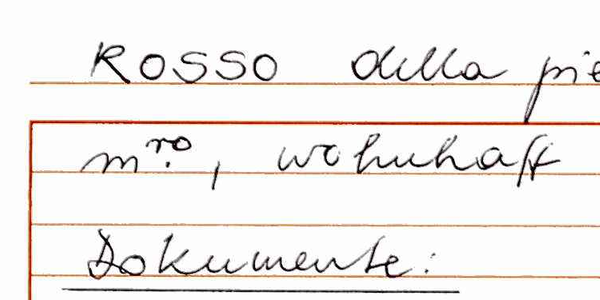 ROSSO della pie
mro, wohnhaft
Dokumente: